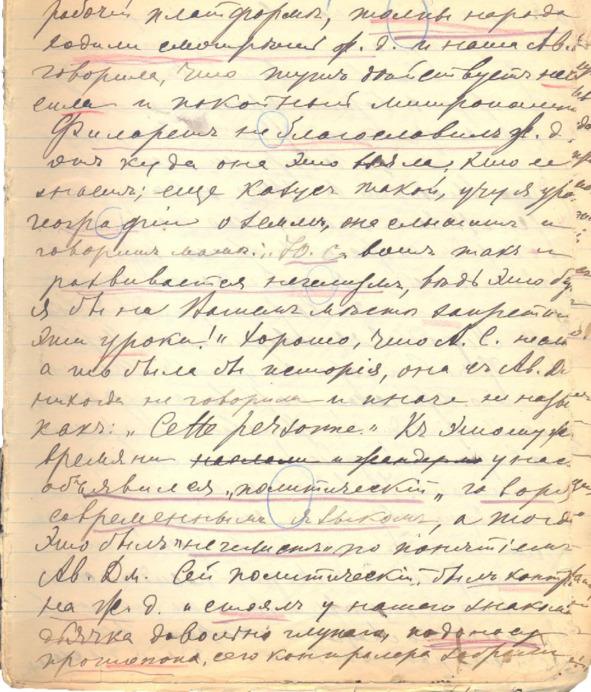 рабочей платформы, толпы народа
ходили смотреть ж. д. и наша Ав.
говорила, что тутъ действуетъ не
сила и покойный митрополит
Филаретъ не благословилъ ж. д.
откуда она это взяла, кто ее
знаетъ; еще казусъ такой, учу я уро
географiи о земле, она слышит и
говоритъ маме: „Ю. С. вотъ такъ и
развивается нечистый, ведь это бу
я бы на Вашемъ месте запретил
эти уроки!" Хорошо, что А. С. не
а то была бы исторiя, она съ Ав. Дм
никогда не говорила и иначе не назы
какъ: „Cette personne." Къ этому же
времяни у нас
объявился „политическiй" говоря
современнымъ языкомъ, а тогда
это былъ „нечистый" по понятiямъ
Ав. Дм. Сей политическiй былъ контр
на ж. д. и стоялъ у нашего знаком
дьячка довольно глупаго,
протопопа, сего контралера